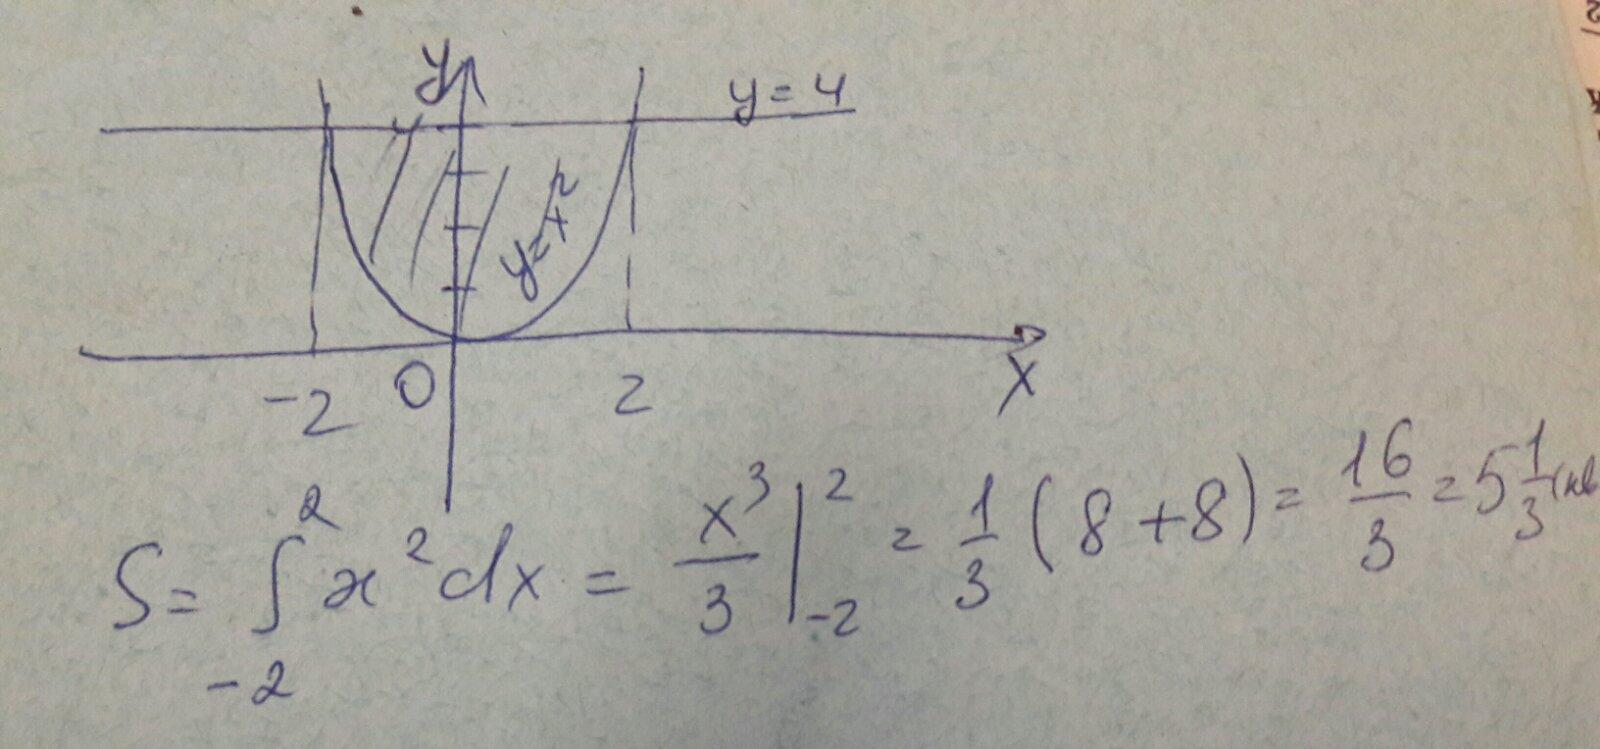 y
y = 4
y=x²
-2 0 2 x
S = ∫₋₂² x² dx = x³/3 |₋₂² = 1/3 (8 + 8) = 16/3 = 5 1/3